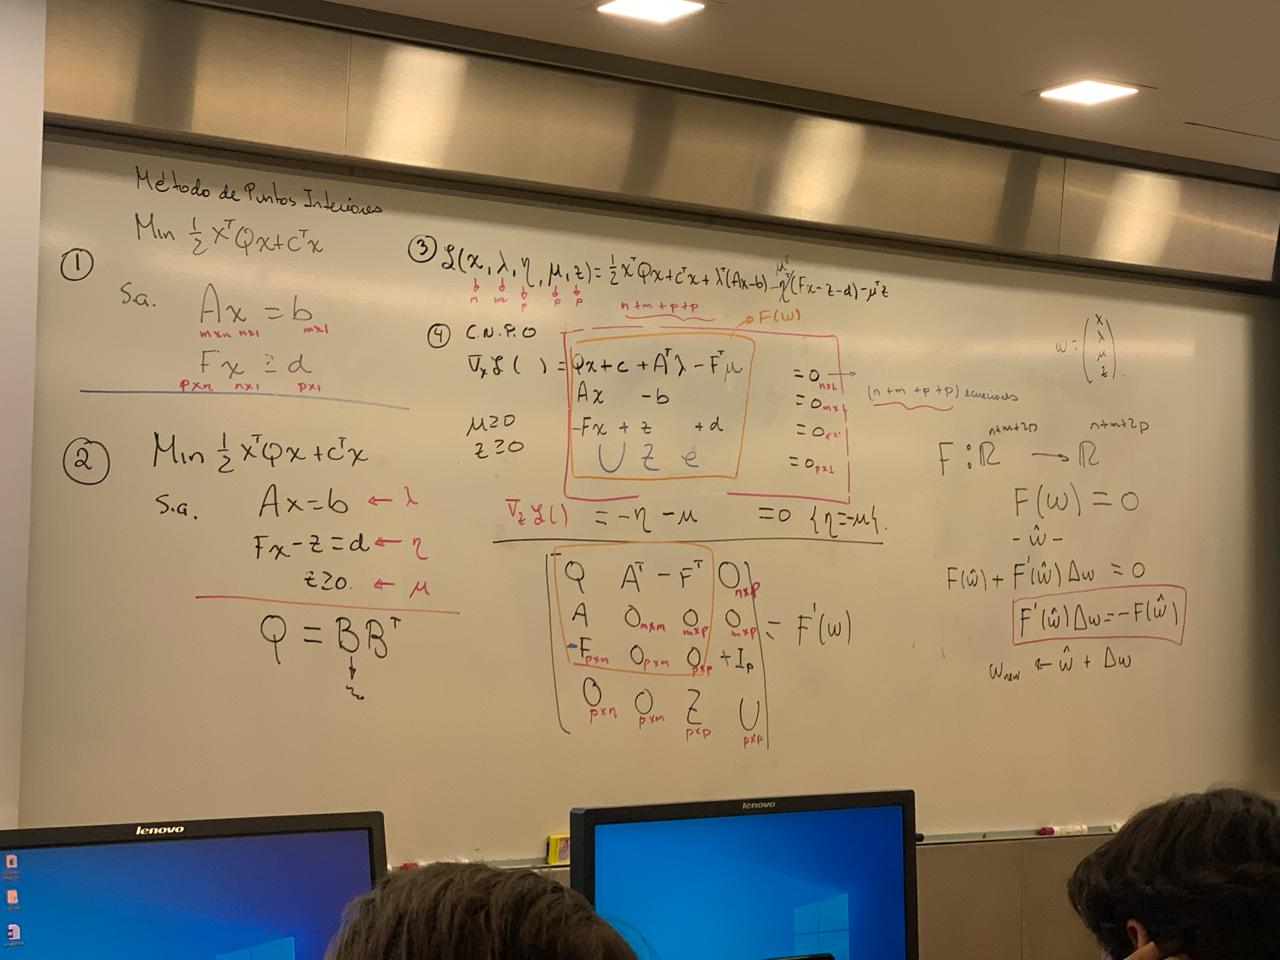 Método de Puntos Interiores
① Min ½ xᵀQx+cᵀx
s.a. Ax = b
m×n n×1 m×1
Fx ≥ d
p×n n×1 p×1
② Min ½ xᵀQx+cᵀx
s.a. Ax=b ← λ
Fx-z=d ← η
z≥0. ← μ
Q = BBᵀ
③ ℒ(x, λ, η, μ, z) = ½ xᵀQx+cᵀx + λᵀ(Ax-b) - ηᵀ(Fx-z-d) - μᵀz
μᵀ
n m p p p
n+m+p+p
④ C.N.P.O
F(w)
∇ₓℒ( ) = Qx+c +Aᵀλ - Fᵀμ = 0 n×1
Ax -b = 0 m×1
μ≥0 -Fx + z +d = 0 p×1
z≥0 U Z e = 0 p×1
(n+m+p+p) ecuaciones
∇zℒ( ) = -η -μ = 0 {η=-μ}.
Q Aᵀ -Fᵀ 0 n×p
A 0 m×m 0 m×p 0 m×p = F'(w)
-F p×n 0 p×m 0 p×p +Ip
0 p×n 0 p×m Z p×p U p×p
w = (x λ μ z).
F: ℝ n+m+2p → ℝ n+m+2p
F(w) = 0
- ŵ -
F(ŵ) + F'(ŵ) Δw = 0
F'(ŵ)Δw=-F(ŵ)
w new ← ŵ + Δw
lenovo
lenovo